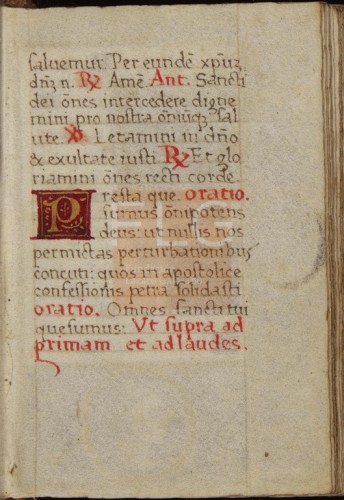 saluemur Per eundē xp̄uȝ
dn̄ȝ n. ℞ Amē. Ant. Sancti
dei ōnes intercedere digne
mini pro nostra om̄iūqȝ sal
ute ℣ Letamini in dn̄o
& exultate iusti ℞ Et glo
riamini ōnes recti corde
Presta que. oratio.
sumus ōnipotens
deus: ut nullis nos
permictas perturbationibus
concuti: quos in apostolice
confessionis petra solidasti
oratio. Omnes sancti tui
quesumus: Ut supra ad
primam et ad laudes.
FLC